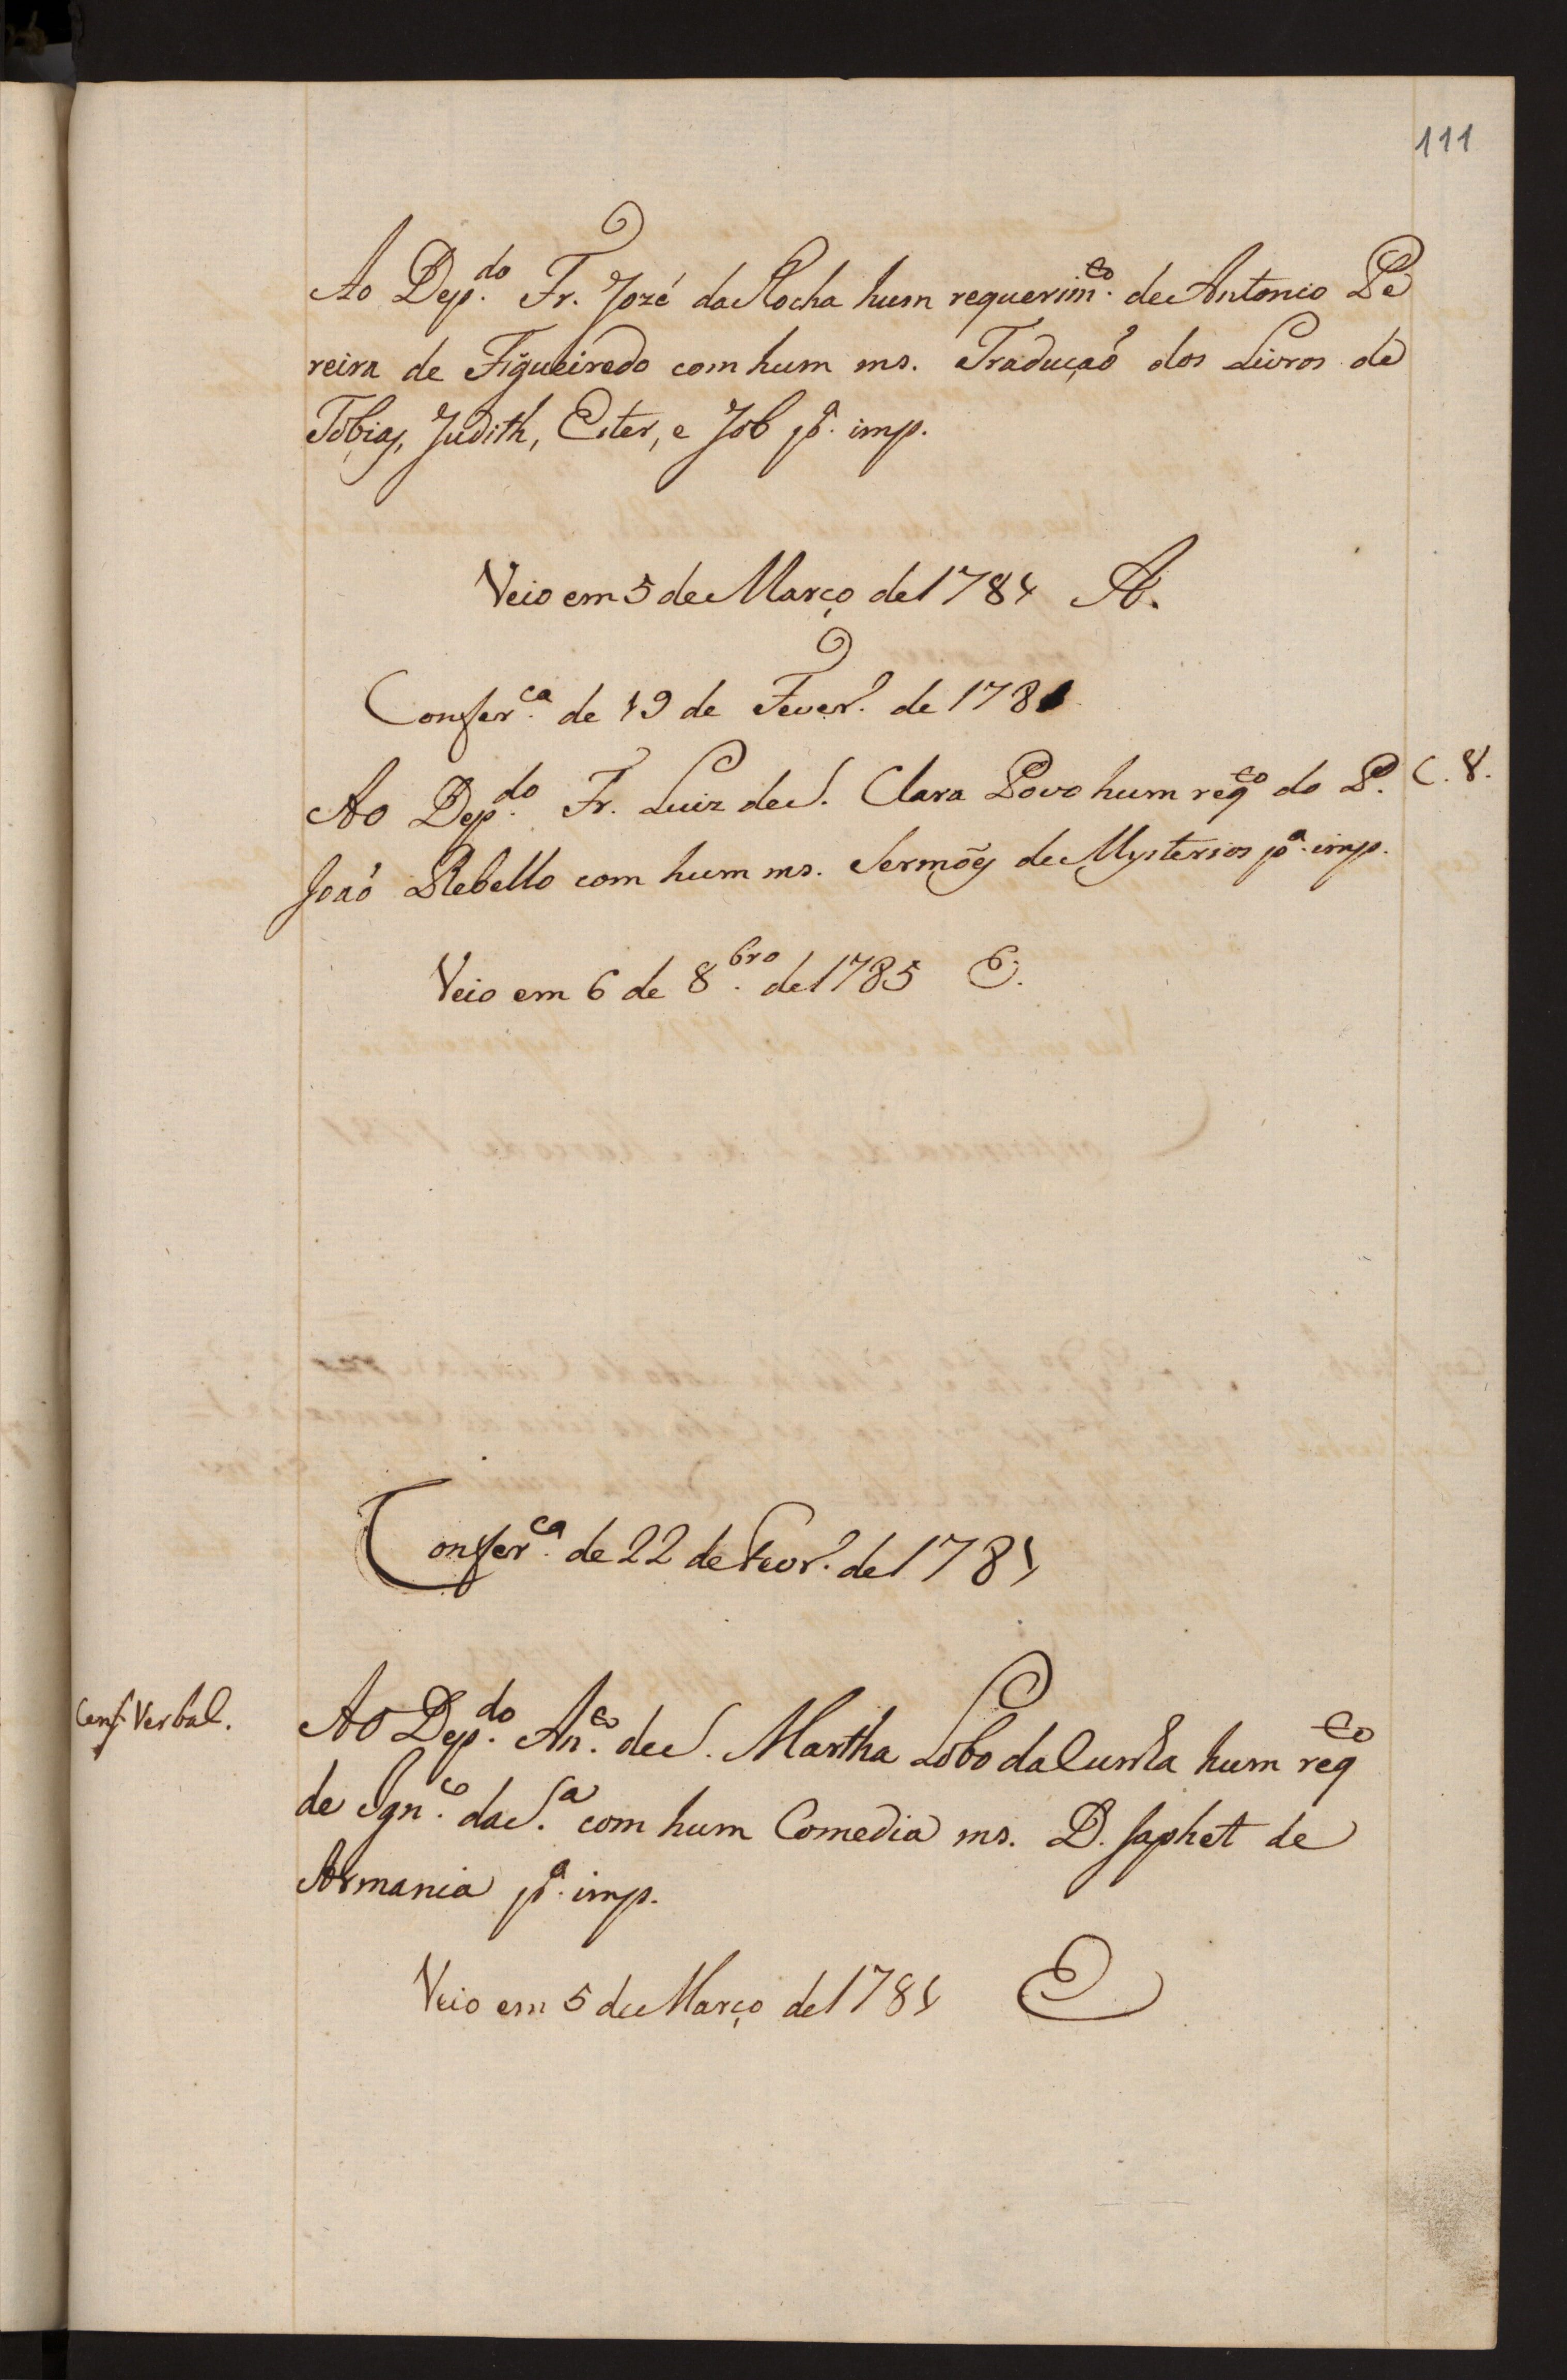 111
Ao Dep.do Fr. Jozé da Rocha hum requerim.to de Antonio Pe
reira de Figueiredo com hum ms. Traduçaõ dos Livros de
Tobias, Judith, Ester, e Job p.a imp.
Veio em 5 de Março de 1784 A.
Confer.ca de 19 de Fever.o de 1784
Ao Dep.do Fr. Luiz de S. Clara Povo hum reqto do P. C. 8.
Joaõ Rebello com hum ms. Sermões de Mysterios p.a imp.
Veio em 6 de 8.bro de 1785 E.
Confer.ca de 22 de Fevr.o de 1784
Cens. Verbal.
Ao Dep.do An.to de S. Martha Lobo da Cunha hum reqto
de Ign.co da S.a com hum Comedia ms. D. Japhet de
Armania p.a imp.
Veio em 5 de Março de 1784 E